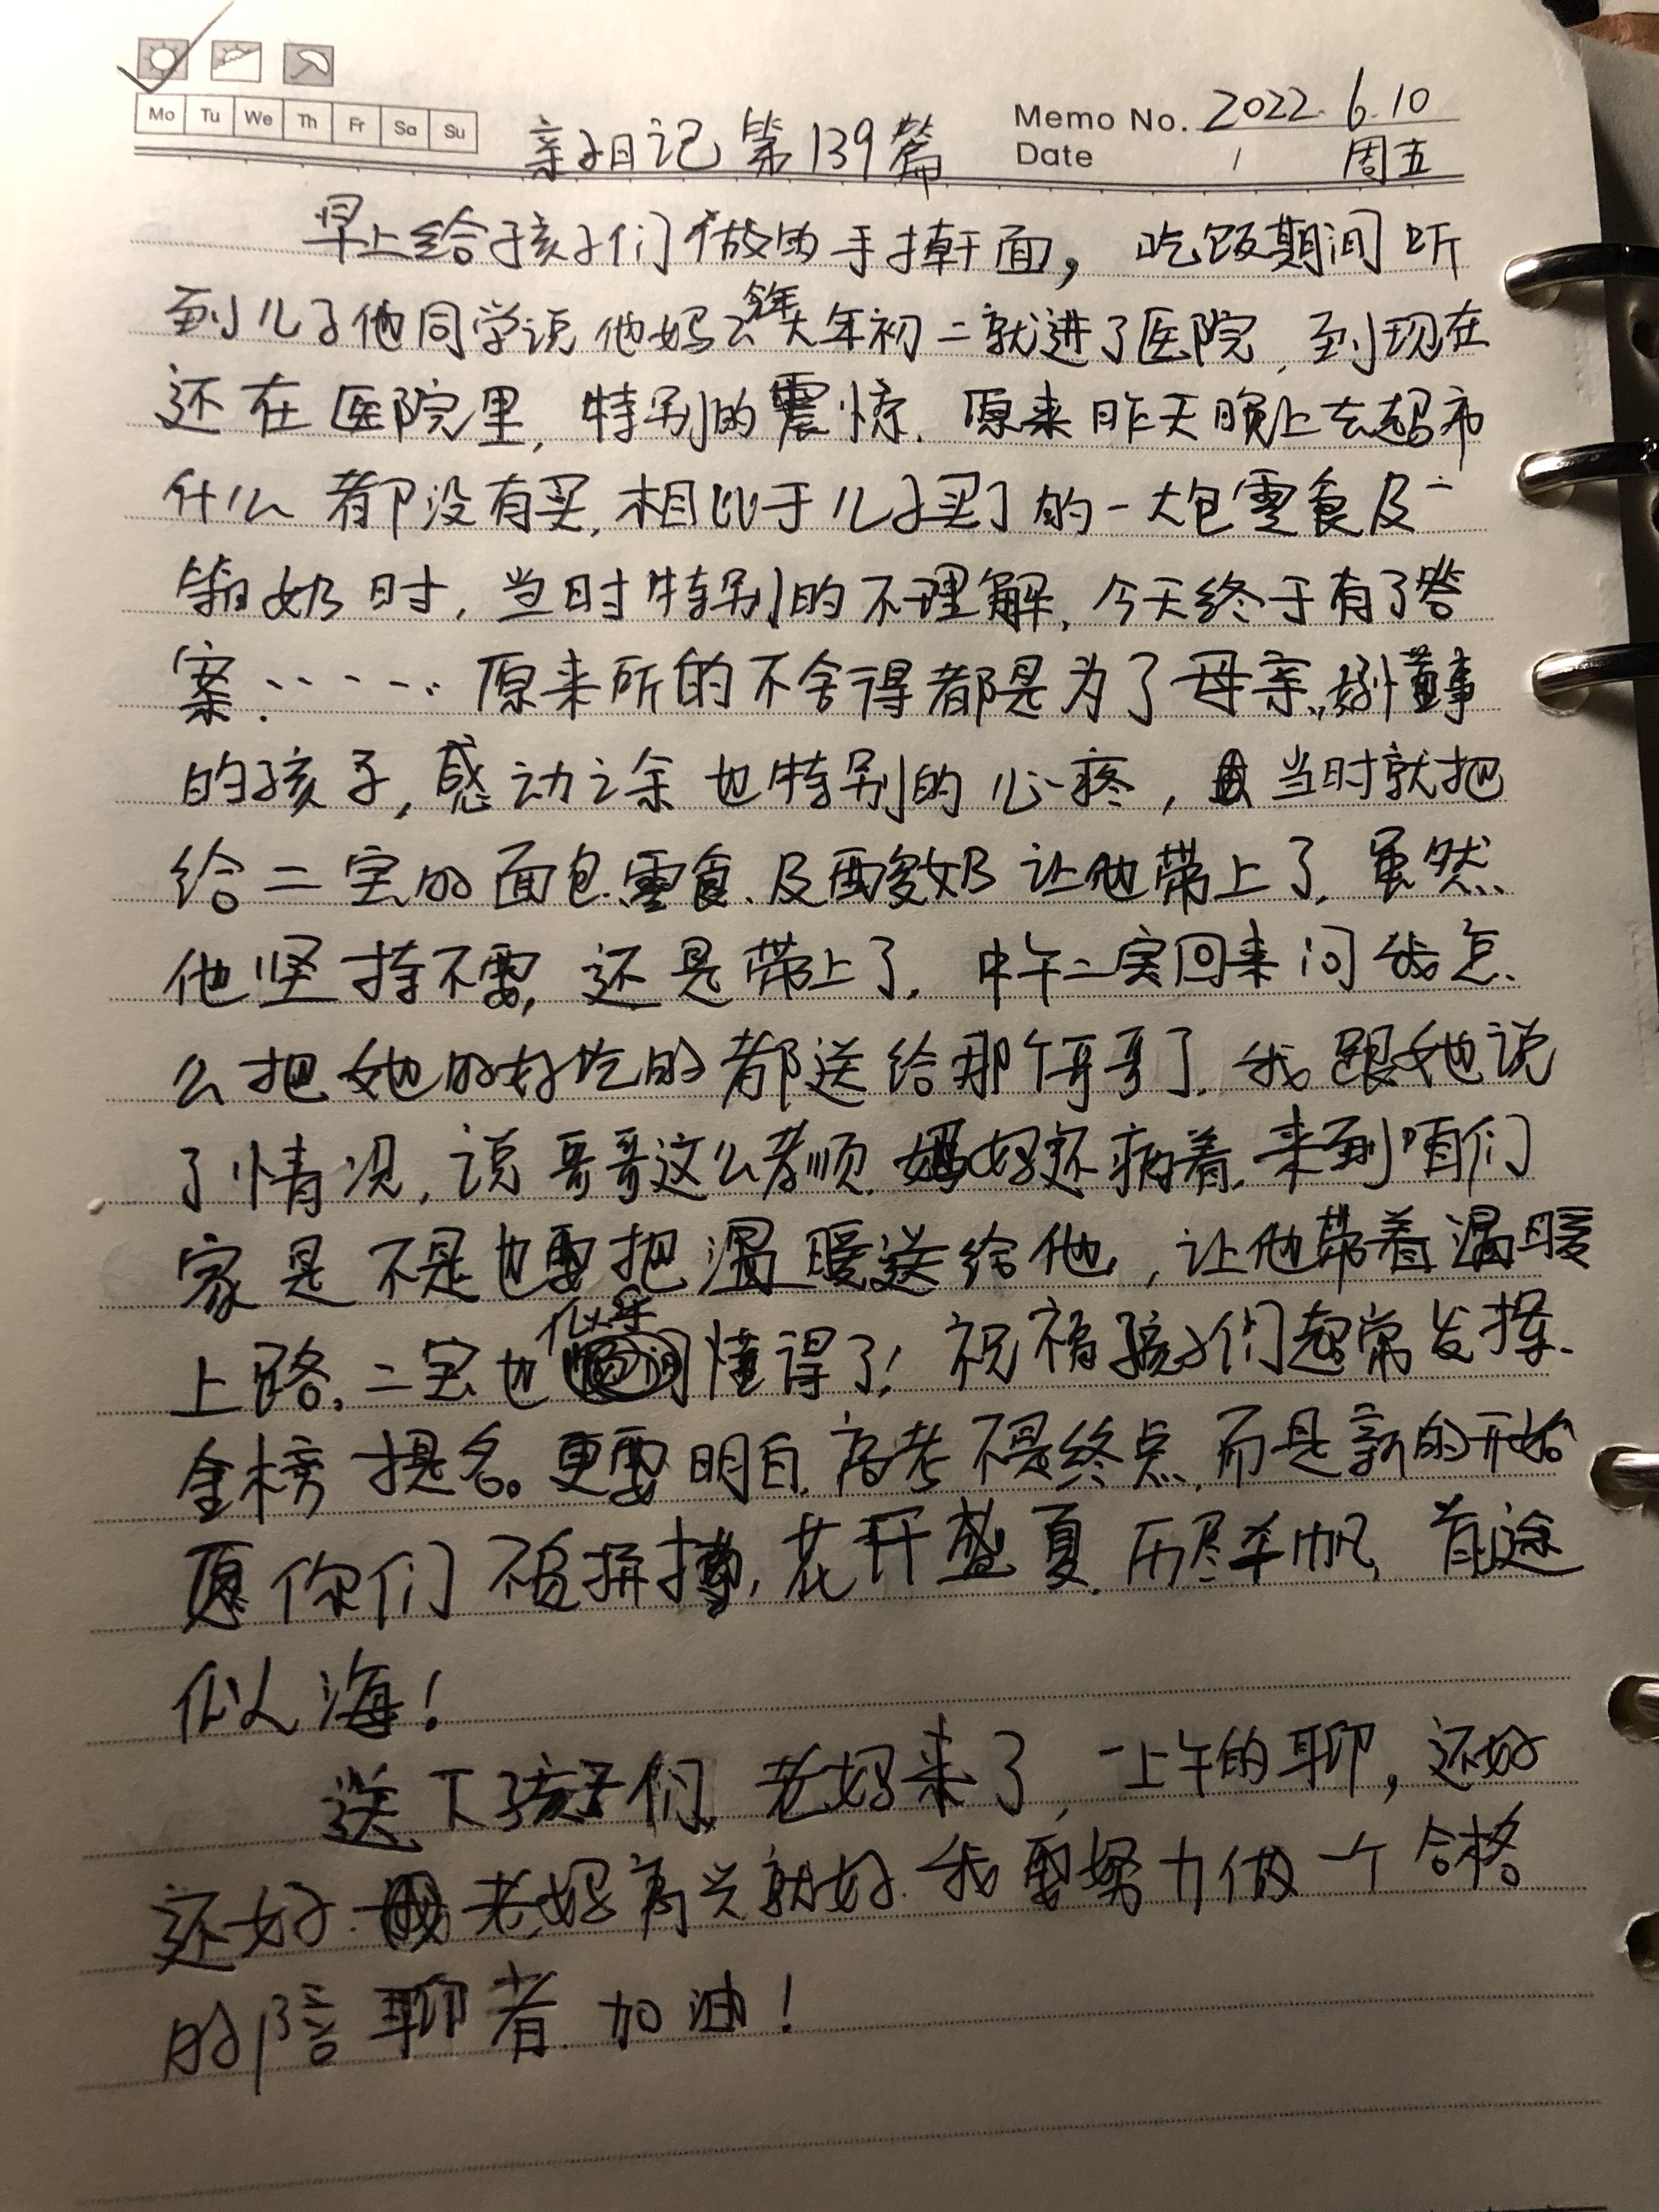 Mo Tu We Th Fr Sa Su
亲子日记 第139篇
Memo No. 2022.6.10
Date / 周五
早上给孩子们做的手擀面，吃饭期间听
到儿子他同学说他妈今年大年初二就进了医院,到现在
还在医院里,特别的震惊.原来昨天晚上去超市
什么都没有买,相比于儿子买了的一大包零食及一
箱奶时,当时特别的不理解,今天终于有了答
案……原来所的不舍得都是为了母亲,好懂事
的孩子,感动之余也特别的心疼,当时就把
给二宝的面包、零食、及酸奶让他带上了,虽然
他坚持不要,还是带上了.中午二宝回来问我怎
么把她的好吃的都送给那个哥哥了.我跟她说
了情况,说哥哥这么孝顺,妈妈还病着,来到咱们
家是不是也要把温暖送给他,让他带着温暖
上路.二宝也似乎懂得了!祝福孩子们超常发挥.
金榜提名。更要明白,高考不是终点,而是新的开始
愿你们不负拼搏,花开盛夏,历尽千帆,前途
似海!
送下孩子们,老妈来了,一上午的聊,还好
还好.老妈高兴就好.我要努力做一个合格
的陪聊者.加油!